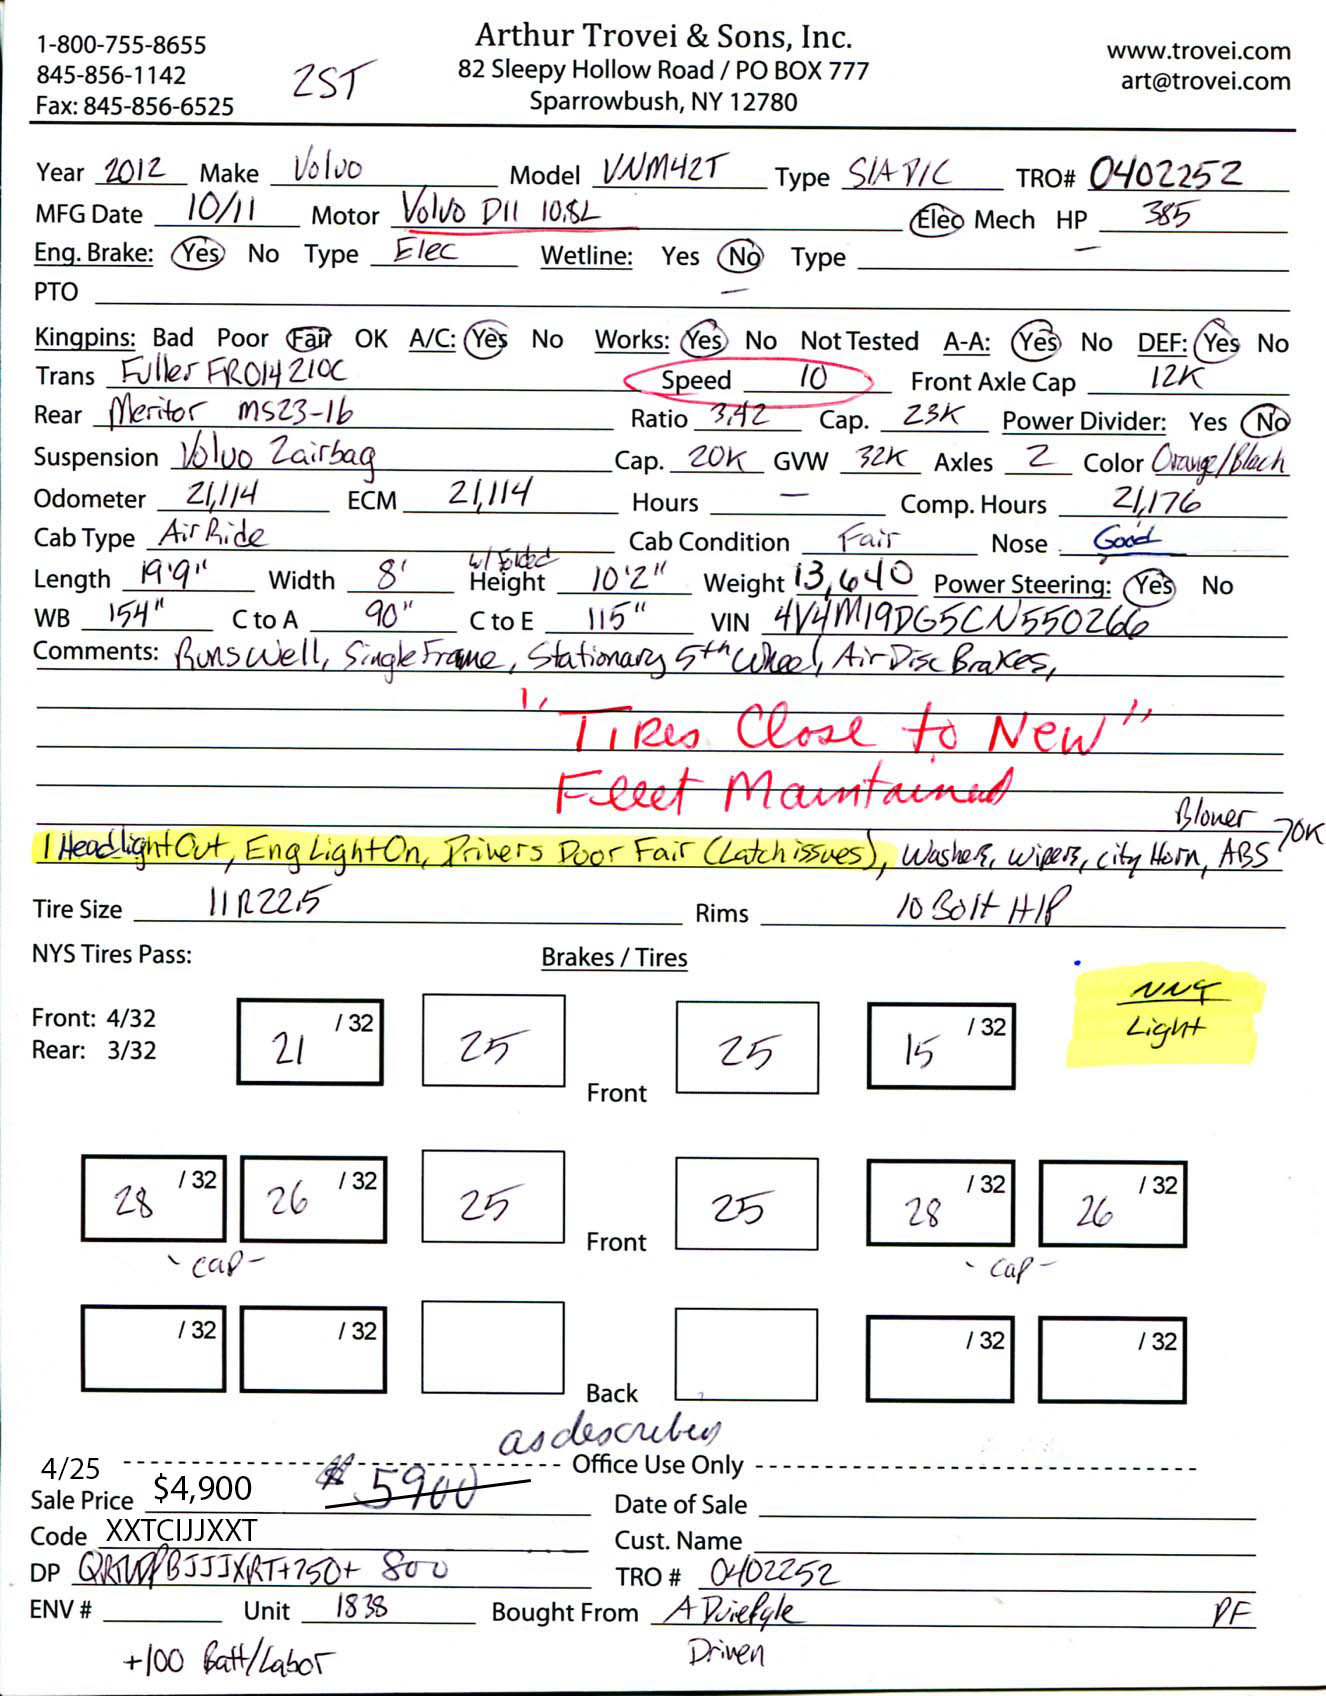 1-800-755-8655
845-856-1142
Fax: 845-856-6525
2ST
Arthur Trovei & Sons, Inc.
82 Sleepy Hollow Road / PO BOX 777
Sparrowbush, NY 12780
www.trovei.com
art@trovei.com
Year 2012 Make Volvo Model VNM42T Type S/A D/C TRO# 0402252
MFG Date 10/11 Motor Volvo D11 10.8L Elec Mech HP 385
Eng. Brake: Yes No Type Elec Wetline: Yes No Type —
PTO —
Kingpins: Bad Poor Fair OK A/C: Yes No Works: Yes No Not Tested A-A: Yes No DEF: Yes No
Trans Fuller FRO14210C Speed 10 Front Axle Cap 12K
Rear Meritor MS23-16 Ratio 3.42 Cap. 23K Power Divider: Yes No
Suspension Volvo 2airbag Cap. 20K GVW 32K Axles 2 Color Orange/Black
Odometer 21,114 ECM 21,114 Hours — Comp. Hours 21,176
Cab Type Air Ride Cab Condition Fair Nose Good
w/ Folded
Length 19'9" Width 8' Height 10'2" Weight 13,640 Power Steering: Yes No
WB 154" C to A 90" C to E 115" VIN 4V4M19DG5CN550266
Comments: Runs Well, Single Frame, Stationary 5th Wheel, Air Disc Brakes,
"Tires Close to New"
Fleet Maintained
Blower
1 Headlight Out, Eng Light On, Drivers Door Fair (Latch issues), Washers, Wipers, City Horn, ABS 70K
Tire Size 11R22.5 Rims 10 Bolt H/P
NYS Tires Pass: Brakes / Tires
NNT
Light
Front: 4/32
Rear: 3/32
21 /32 25 Front 25 15 /32
28 /32 26 /32 25 Front 25 28 /32 26 /32
- cap - - cap -
/32 /32 Back /32 /32
as described
4/25 Office Use Only
Sale Price $4,900 $5900 Date of Sale
Code XXTCIJJXXT Cust. Name
DP +750+ 800 TRO # 0402252
ENV # Unit 1838 Bought From DF
+100 Batt/Labor Driven